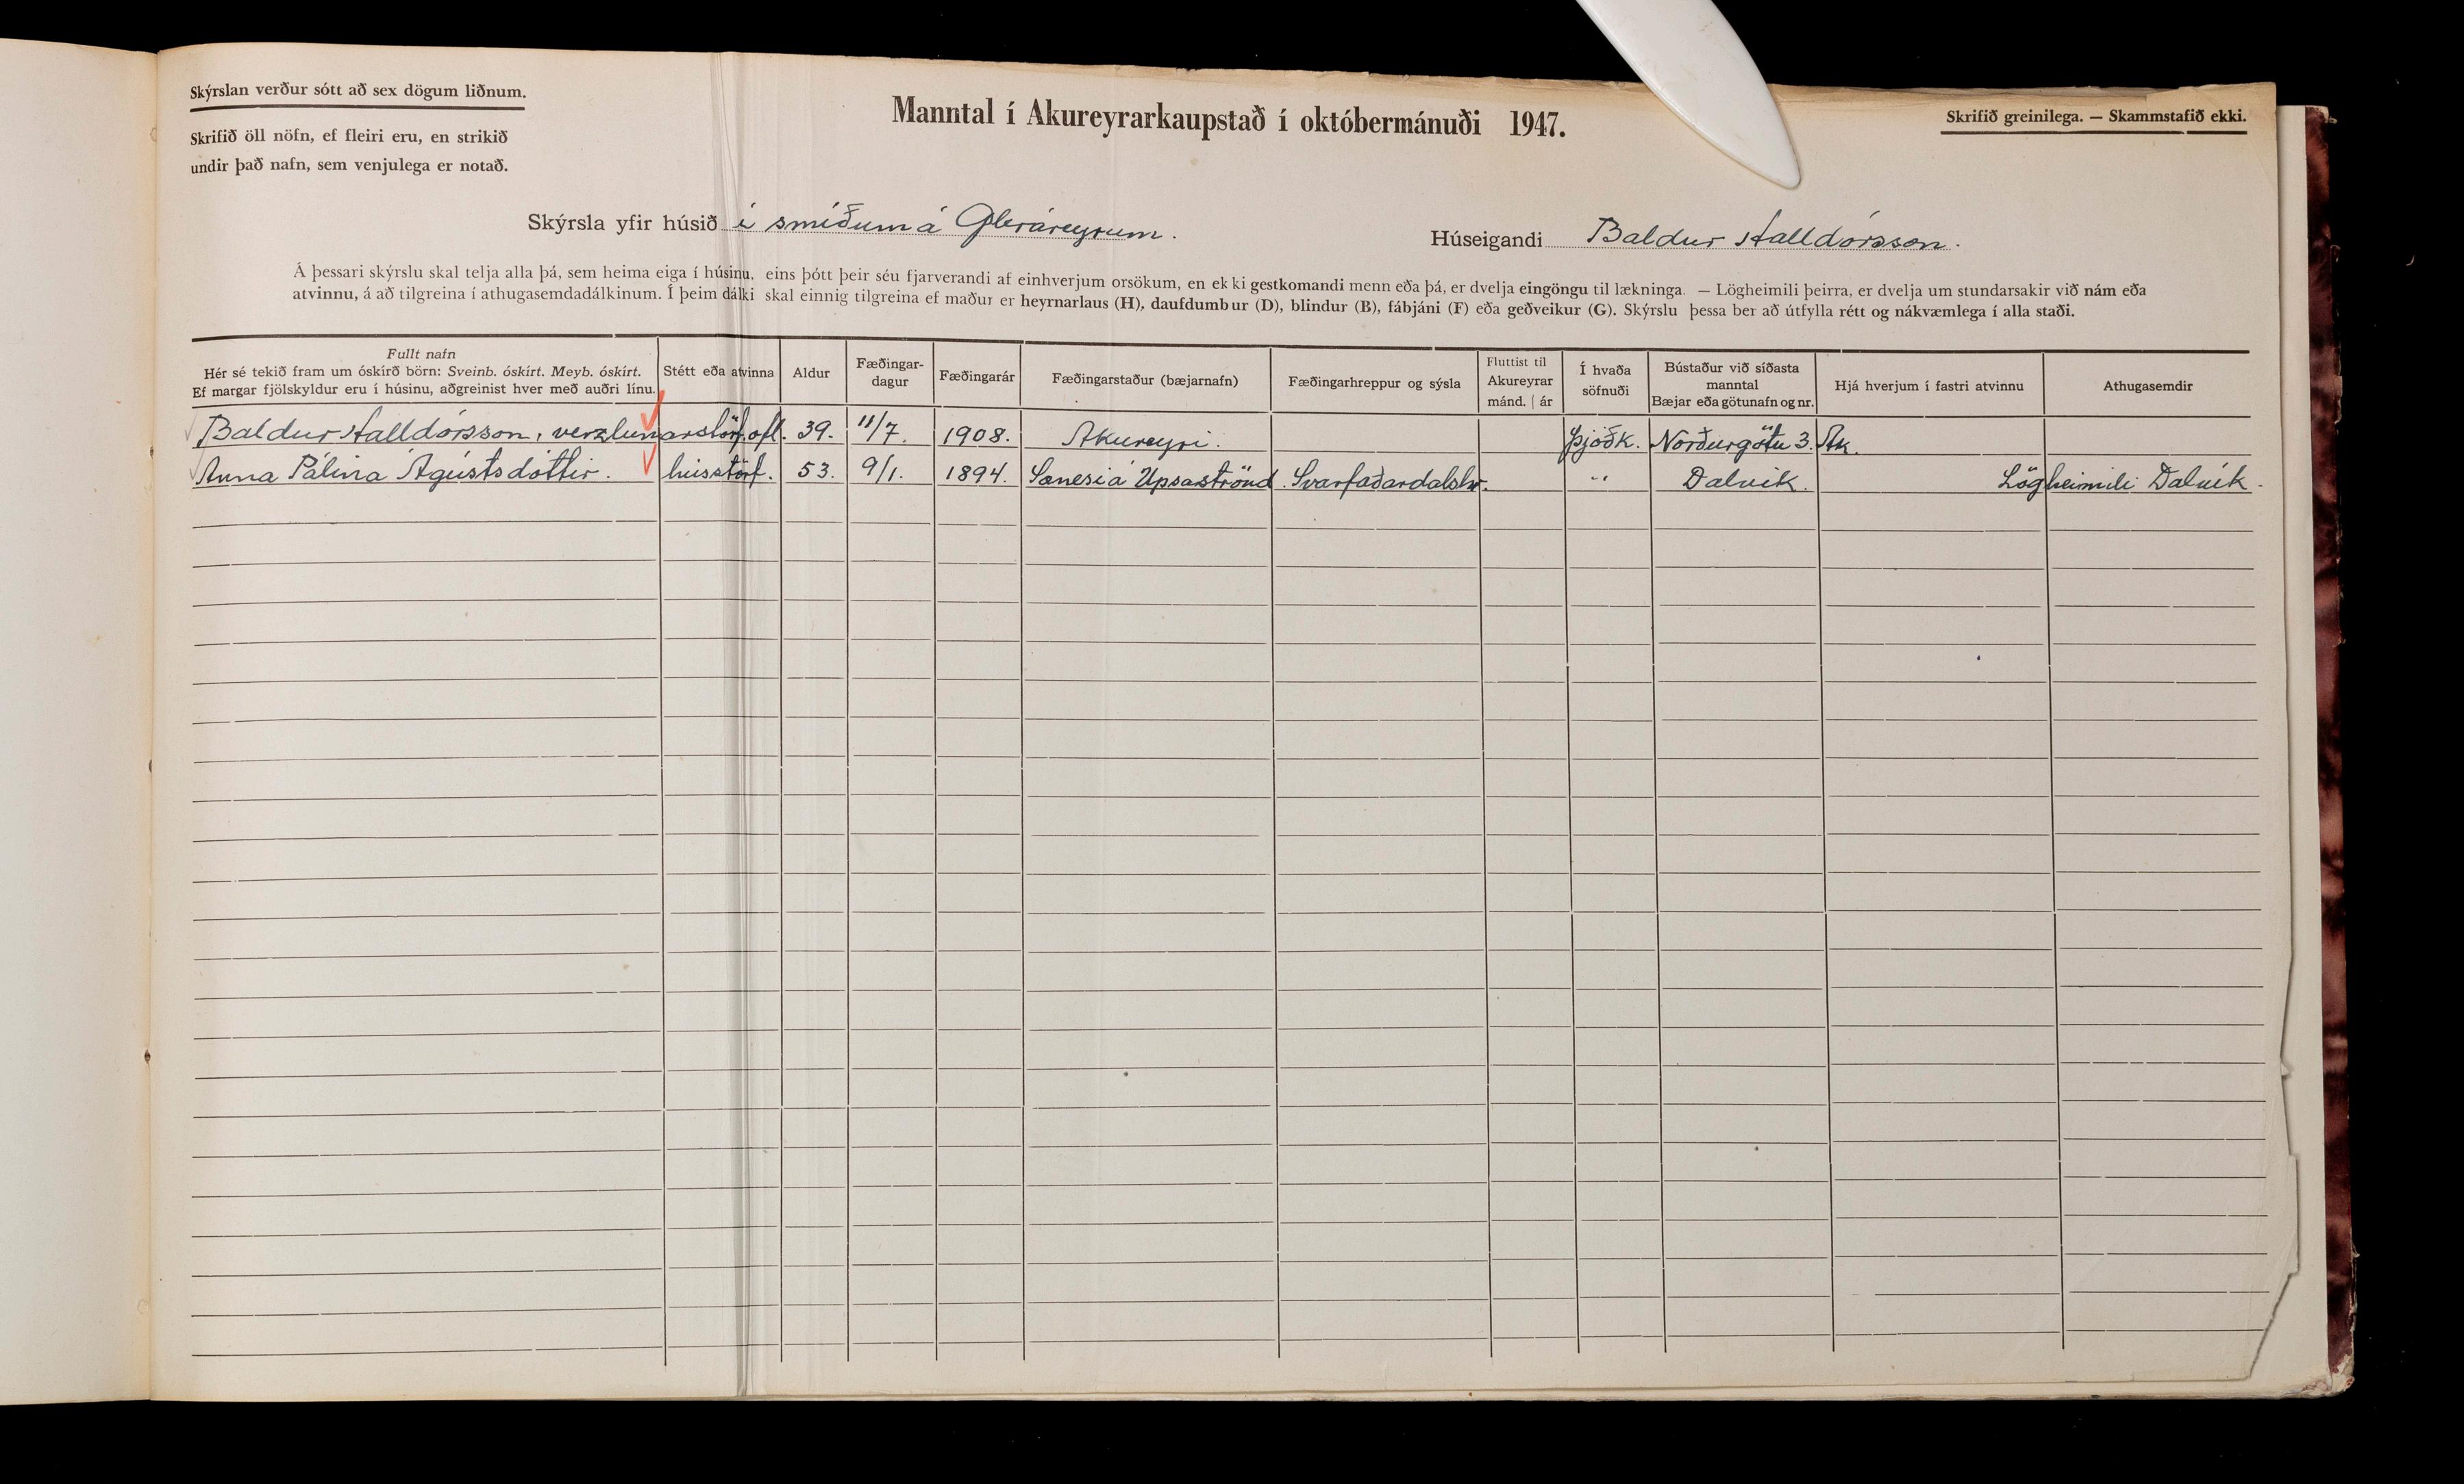 Skýrslan verður sótt að sex dögum liðnum.
Skrifið öll nöfn, ef fleiri eru, en strikið
undir það nafn, sem venjulega er notað.
Manntal í Akureyrarkaupstað í októbermánuði 1947.
Skrifið greinilega. — Skammstafið ekki.
Skýrsla yfir húsið í smíðum á Gleráreyrum.
Húseigandi Baldur Halldórsson.
Á þessari skýrslu skal telja alla þá, sem heima eiga í húsinu, eins þótt þeir séu fjarverandi af einhverjum orsökum, en ekki gestkomandi menn eða þá, er dvelja eingöngu til lækninga. — Lögheimili þeirra, er dvelja um stundarsakir við nám eða
atvinnu, á að tilgreina í athugasemdadálkinum. Í þeim dálki skal einnig tilgreina ef maður er heyrnarlaus (H), daufdumbur (D), blindur (B), fábjáni (F) eða geðveikur (G). Skýrslu þessa ber að útfylla rétt og nákvæmlega í alla staði.
Fullt nafn
Hér sé tekið fram um óskírð börn: Sveinb. óskírt. Meyb. óskírt.
Ef margar fjölskyldur eru í húsinu, aðgreinist hver með auðri línu.
Stétt eða atvinna
Aldur
Fæðingar-
dagur
Fæðingarár
Fæðingarstaður (bæjarnafn)
Fæðingarhreppur og sýsla
Fluttist til
Akureyrar
mánd. | ár
Í hvaða
söfnuði
Bústaður við síðasta
manntal
Bæjar eða götunafn og nr.
Hjá hverjum í fastri atvinnu
Athugasemdir
Baldur Halldórsson, verzlunarstörf ofl. 39. 11/7. 1908. Akureyri. Þjóðk. Norðurgötu 3. Ak.
Anna Pálína Ágústsdóttir. hússtörf. 53. 9/1. 1894. á Upsaströnd. Svarfaðardalshr. " Dalvík. Lögheimili Dalvík.